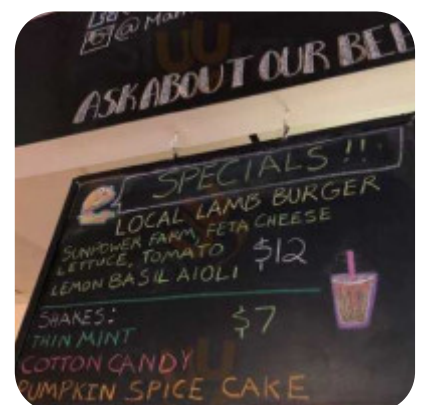 @Mam
ASK ABOUT OUR BEE
SPECIALS!!
LOCAL LAMB BURGER
SUNPOWER FARM, FETA CHEESE
LETTUCE, TOMATO $12
LEMON BASIL AIOLI
SHAKES: $7
THIN MINT
COTTON CANDY
PUMPKIN SPICE CAKE